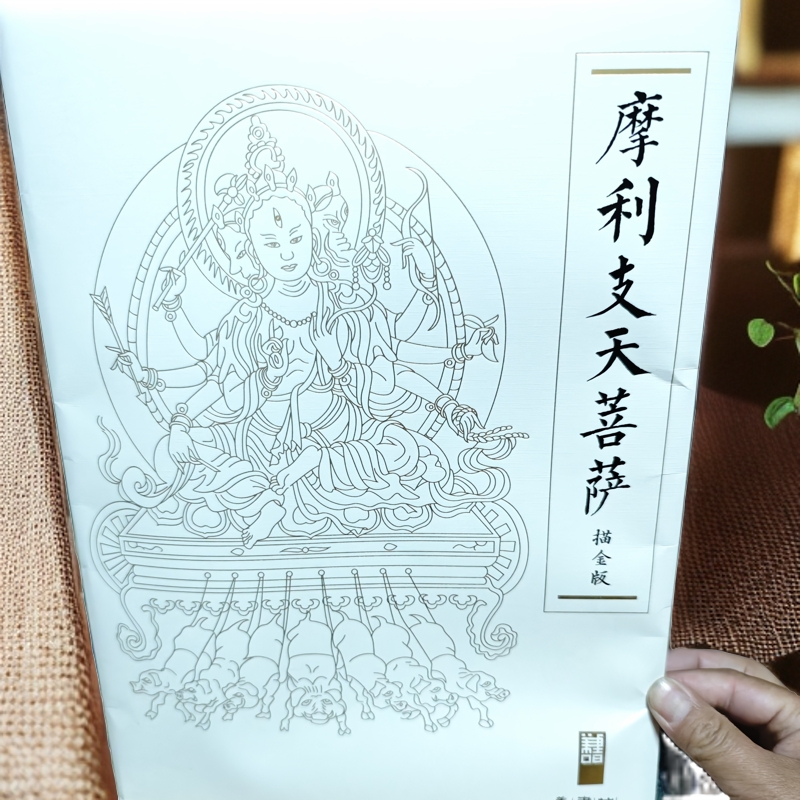 摩利支天菩萨
描金版